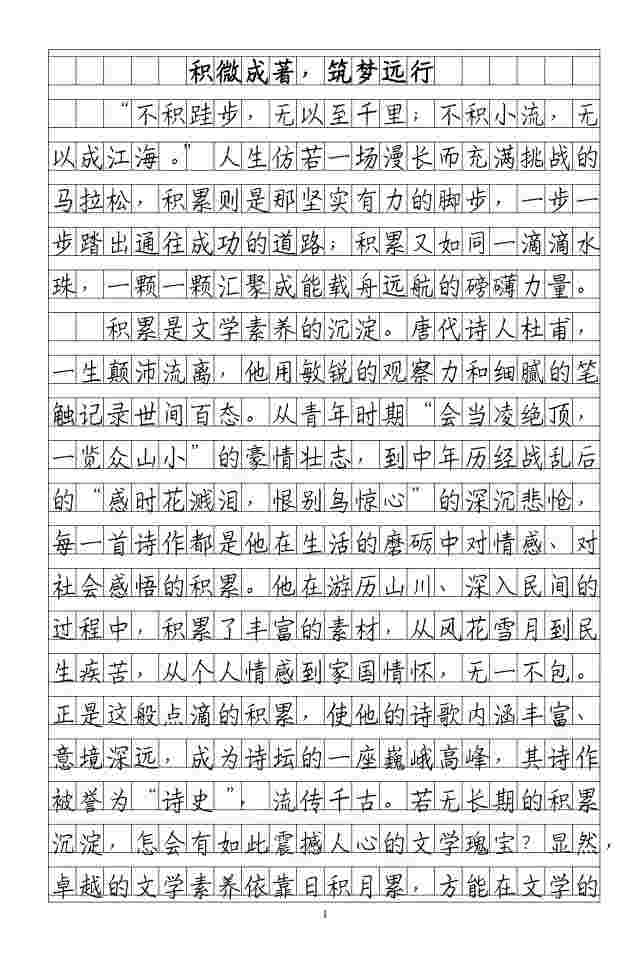 积微成著，筑梦远行
“不积跬步，无以至千里；不积小流，无
以成江海。”人生仿若一场漫长而充满挑战的
马拉松，积累则是那坚实有力的脚步，一步一
步踏出通往成功的道路；积累又如同一滴滴水
珠，一颗一颗汇聚成能载舟远航的磅礴力量。
积累是文学素养的沉淀。唐代诗人杜甫，
一生颠沛流离，他用敏锐的观察力和细腻的笔
触记录世间百态。从青年时期“会当凌绝顶，
一览众山小”的豪情壮志，到中年历经战乱后
的“感时花溅泪，恨别鸟惊心”的深沉悲怆，
每一首诗作都是他在生活的磨砺中对情感、对
社会感悟的积累。他在游历山川、深入民间的
过程中，积累了丰富的素材，从风花雪月到民
生疾苦，从个人情感到家国情怀，无一不包。
正是这般点滴的积累，使他的诗歌内涵丰富、
意境深远，成为诗坛的一座巍峨高峰，其诗作
被誉为“诗史”，流传千古。若无长期的积累
沉淀，怎会有如此震撼人心的文学瑰宝？显然，
卓越的文学素养依靠日积月累，方能在文学的
1